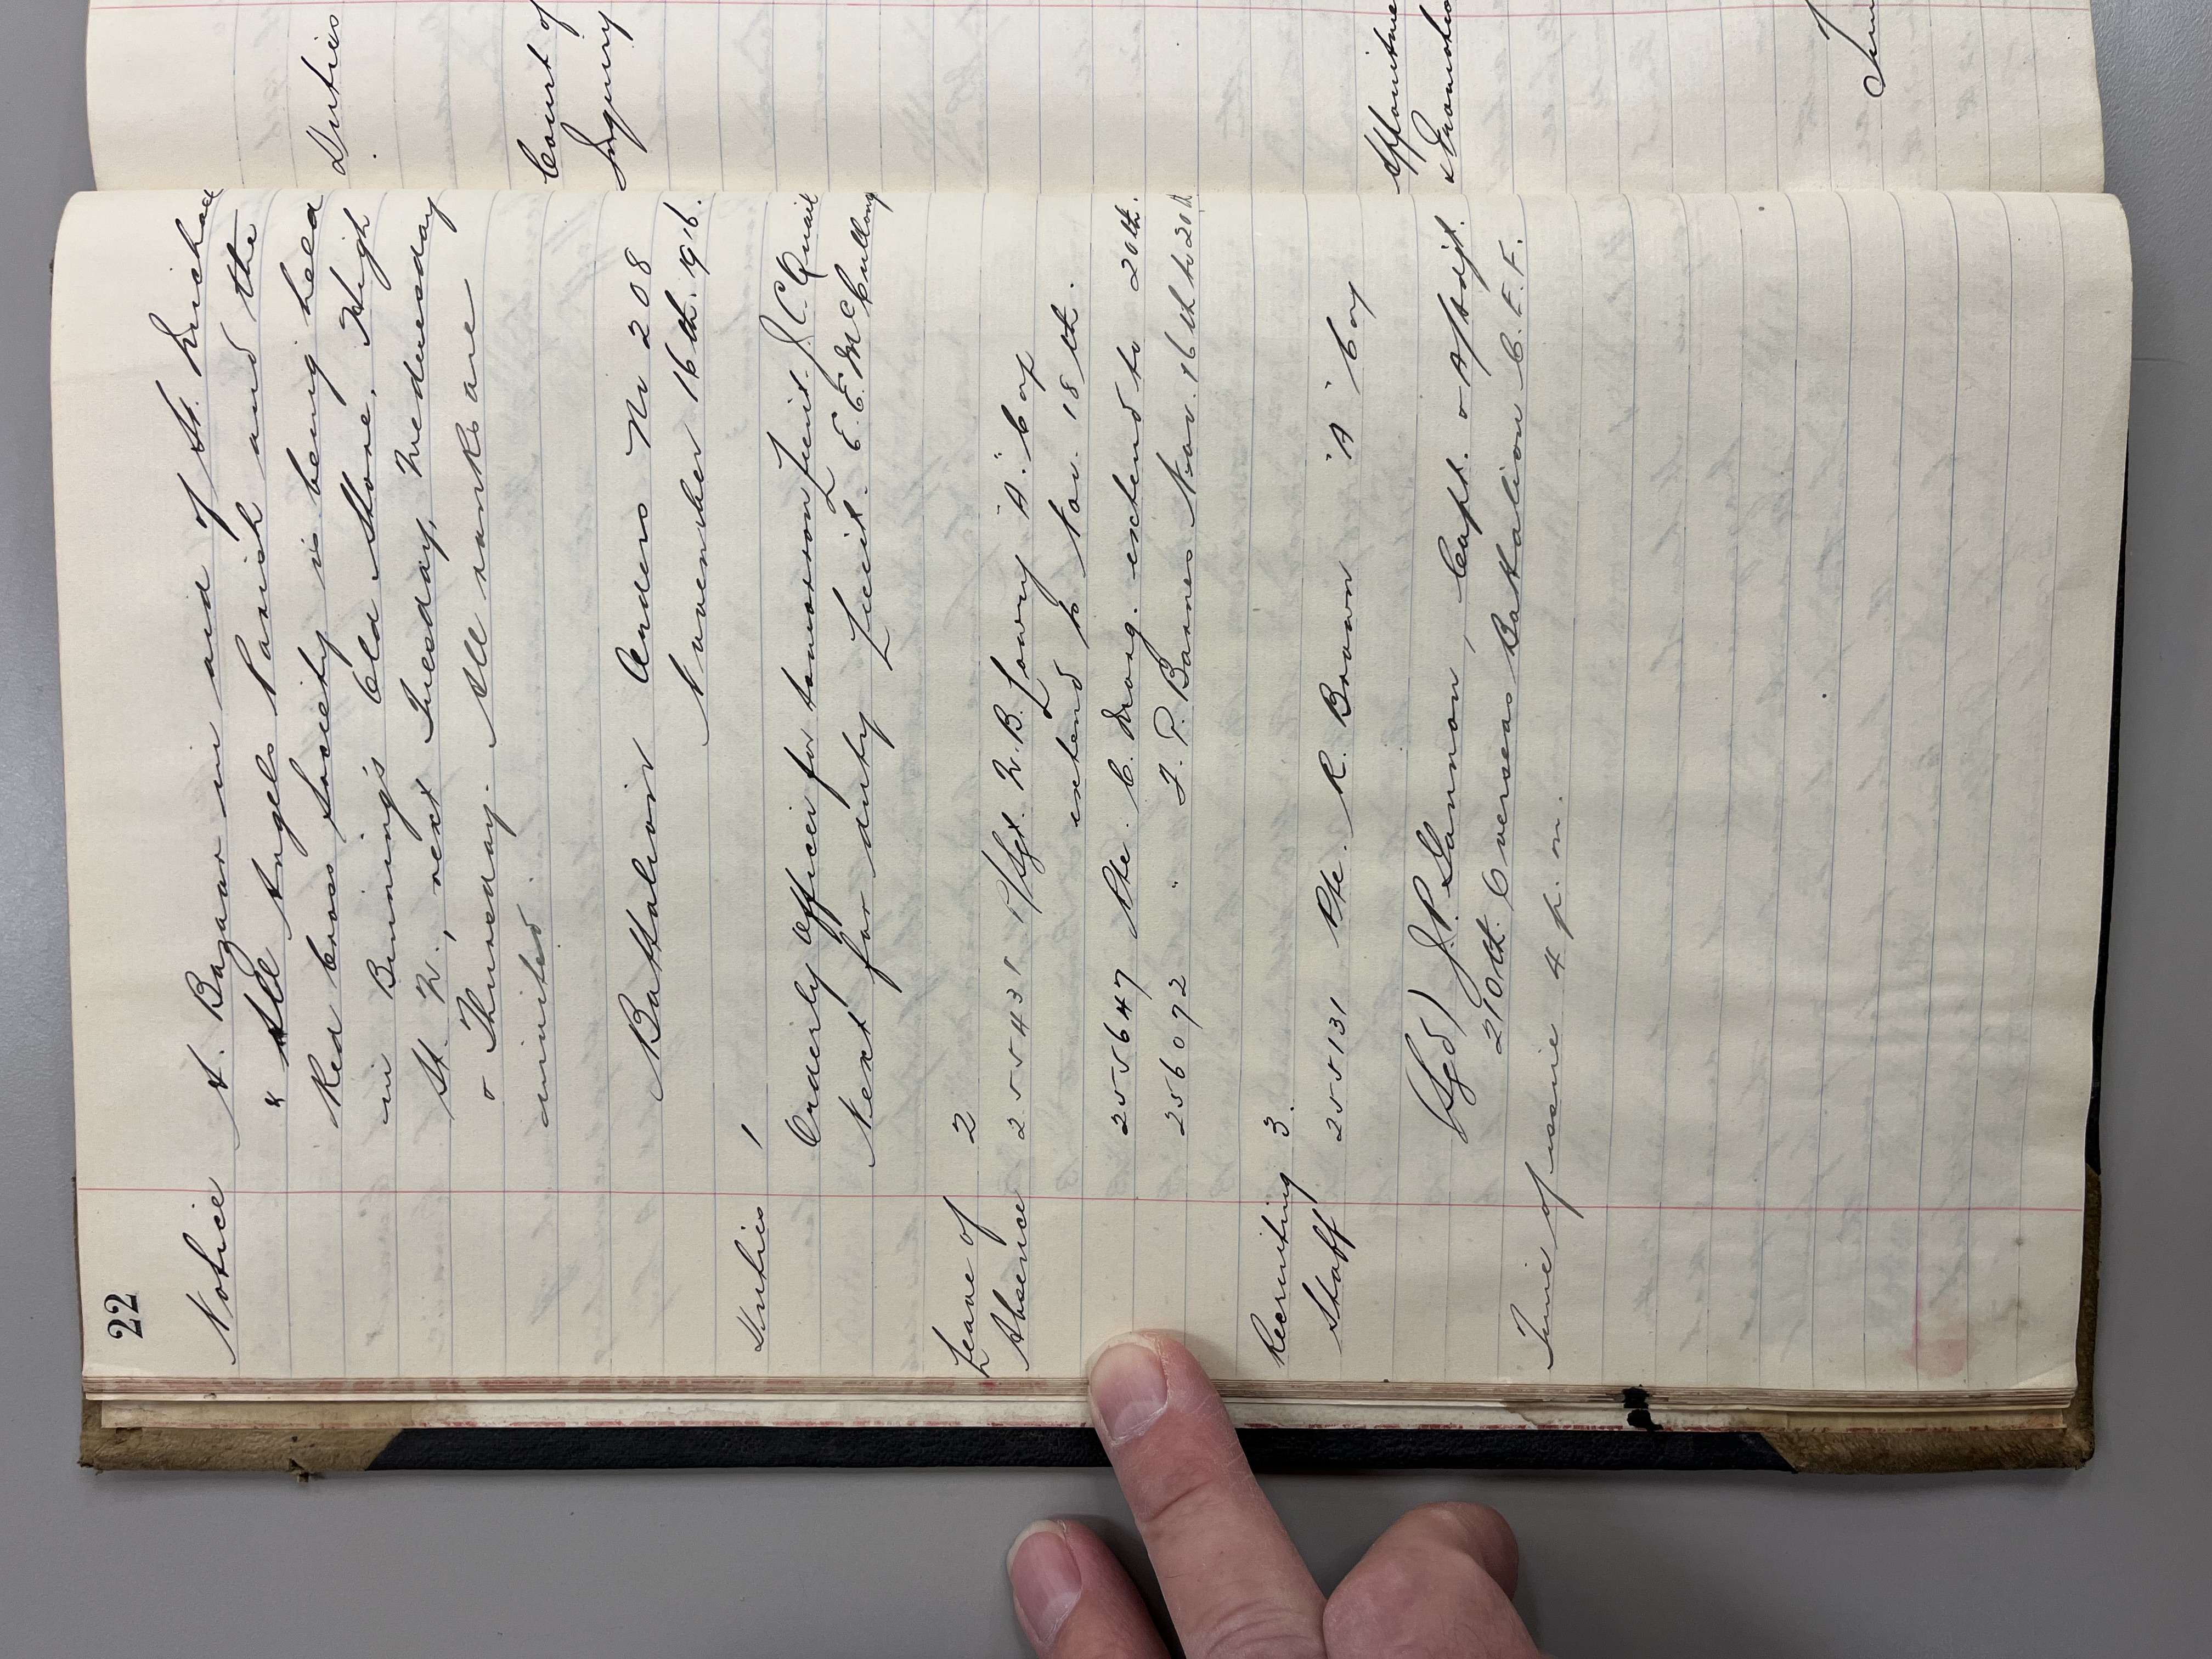 22
Notice A. Bazaar in aid of St. Michael
& All Angels Parish and the
Red Cross Society is being held
in Binning's Old Store, High
St. W., next Tuesday, Wednesday
& Thursday. All ranks are
invited.
Battalion Orders No 208
November 16th. 1916.
Duties 1
Orderly Officer for tomorrow Lieut. J. C. Quail
Next for duty Lieut. E. E. McCullong
Leave of 2
Absence 255431 P/Sgt. W. B. Lowry "A" Coy
extend to Nov. 18th.
255647 Pte. C. Drong. extend to 20th.
256092 " F. P. Barnes Nov. 16th to 20th
Recruiting 3.
Staff 255131 Pte. R. Brown "A" Coy
(Sgd) J. P. Gammon, Capt. & A/Adjt.
210th. Overseas Battalion C.E.F.
Time of issue 4 p.m.
Duties
Court of
Inquiry
Appointme
& Promotio